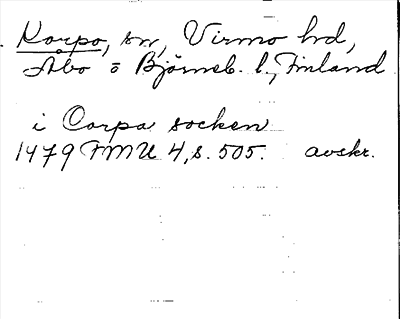 Korpo, sn, Virmo hd,
Åbo o Björneb. l., Finland
i Corpa socken
1479 FMU 4, s. 505. avskr.